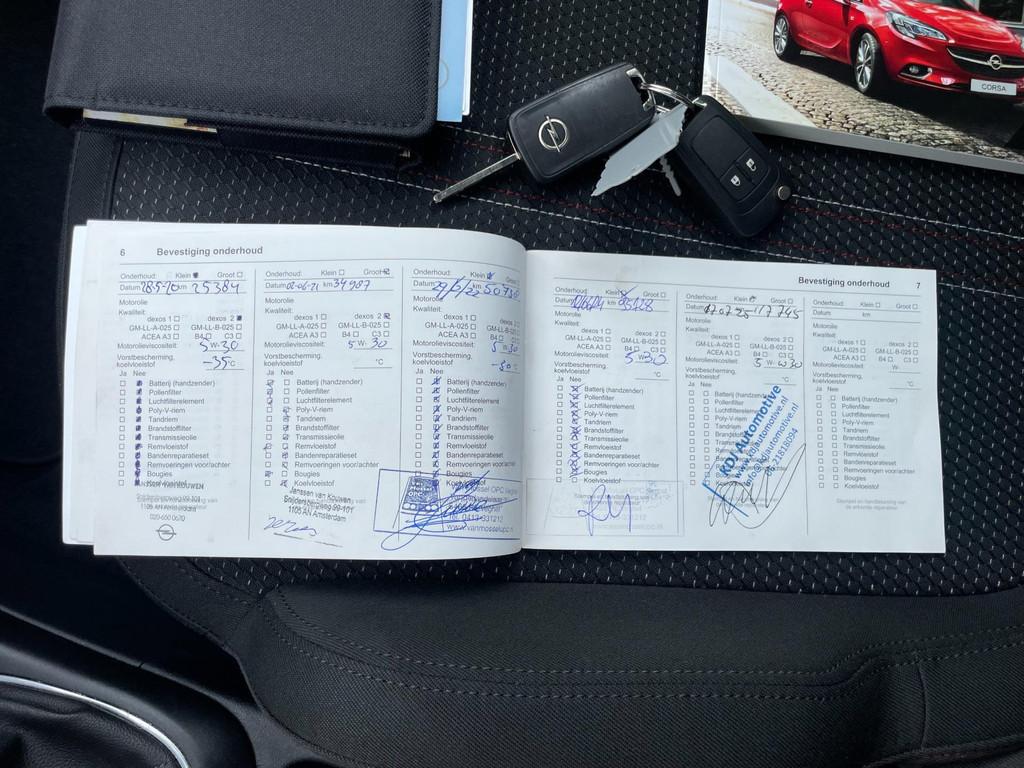 CORSA
6 Bevestiging onderhoud
Onderhoud: Klein Groot
Datum 28-5-20 km 25384
Motorolie
Kwaliteit:
dexos 1 dexos 2
GM-LL-A-025 GM-LL-B-025
ACEA A3 B4 C3
Motorolieviscositeit: 5 W- 30
Vorstbescherming,
koelvloeistof -35 °C
Ja Nee
Batterij (handzender)
Pollenfilter
Luchtfilterelement
Poly-V-riem
Tandriem
Brandstoffilter
Transmissieolie
Remvloeistof
Bandenreparatieset
Remvoeringen voor/achter
Bougies
Koelvloeistof
1105 AN Amsterdam
020-650 0670
Onderhoud: Klein Groot
Datum 02-06-21 km 34987
Motorolie
Kwaliteit:
dexos 1 dexos 2
GM-LL-A-025 GM-LL-B-025
ACEA A3 B4 C3
Motorolieviscositeit: 5 W- 30
Vorstbescherming,
koelvloeistof °C
Ja Nee
Batterij (handzender)
Pollenfilter
Luchtfilterelement
Poly-V-riem
Tandriem
Brandstoffilter
Transmissieolie
Remvloeistof
Bandenreparatieset
Remvoeringen voor/achter
Bougies
Koelvloeistof
Janssen van Kouwen
Snijdersbergweg 99-101
1105 AN Amsterdam
Onderhoud: Klein Groot
Datum km
Motorolie
Kwaliteit:
dexos 1 dexos 2
GM-LL-A-025 GM-LL-B-025
ACEA A3 B4 C3
Motorolieviscositeit: 5 W- 30
Vorstbescherming,
koelvloeistof °C
Ja Nee
Batterij (handzender)
Pollenfilter
Luchtfilterelement
Poly-V-riem
Tandriem
Brandstoffilter
Transmissieolie
Remvloeistof
Bandenreparatieset
Remvoeringen voor/achter
Bougies
Koelvloeistof
OPC
Bevestiging onderhoud 7
Onderhoud: Klein Groot
Datum km
Motorolie
Kwaliteit:
dexos 1 dexos 2
GM-LL-A-025 GM-LL-B-025
ACEA A3 B4 C3
Motorolieviscositeit: 5 W-
Vorstbescherming,
koelvloeistof °C
Ja Nee
Batterij (handzender)
Pollenfilter
Luchtfilterelement
Poly-V-riem
Tandriem
Brandstoffilter
Transmissieolie
Remvloeistof
Bandenreparatieset
Remvoeringen voor/achter
Bougies
Koelvloeistof
Onderhoud: Klein Groot
17 07 25 117745
Motorolie
Kwaliteit:
dexos 1 dexos 2
GM-LL-A-025 GM-LL-B-025
ACEA A3 B4 C3
Motorolieviscositeit: 5 W- W30
Vorstbescherming,
koelvloeistof °C
Ja Nee
Batterij (handzender)
Pollenfilter
Poly-V-riem
Tandriem
KDJ Automotive
Onderhoud: Klein Groot
Datum km
Motorolie
Kwaliteit:
dexos 1 dexos 2
GM-LL-A-025 GM-LL-B-025
ACEA A3 B4 C3
Motorolieviscositeit: W-
Vorstbescherming,
koelvloeistof °C
Ja Nee
Batterij (handzender)
Pollenfilter
Luchtfilterelement
Poly-V-riem
Tandriem
Brandstoffilter
Transmissieolie
Remvloeistof
Bandenreparatieset
Remvoeringen voor/achter
Bougies
Koelvloeistof